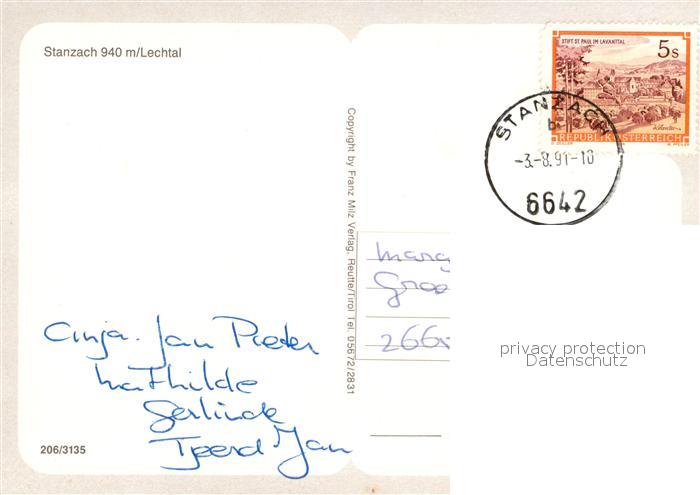 Stanzach 940 m/Lechtal
STIFT ST. PAUL IM LAVANTTAL
5s
REPUBLIK ÖSTERREICH
STANZACH
b
-3.-8.91-10
6642
Copyright by Franz Milz Verlag, Reutte/Tirol Tel. 05672/2831
Marg
Groe
266
privacy protection
Datenschutz
Anja. Jan Pieter
Mathilde
Gerlinde
Tjeerd Jan
206/3135